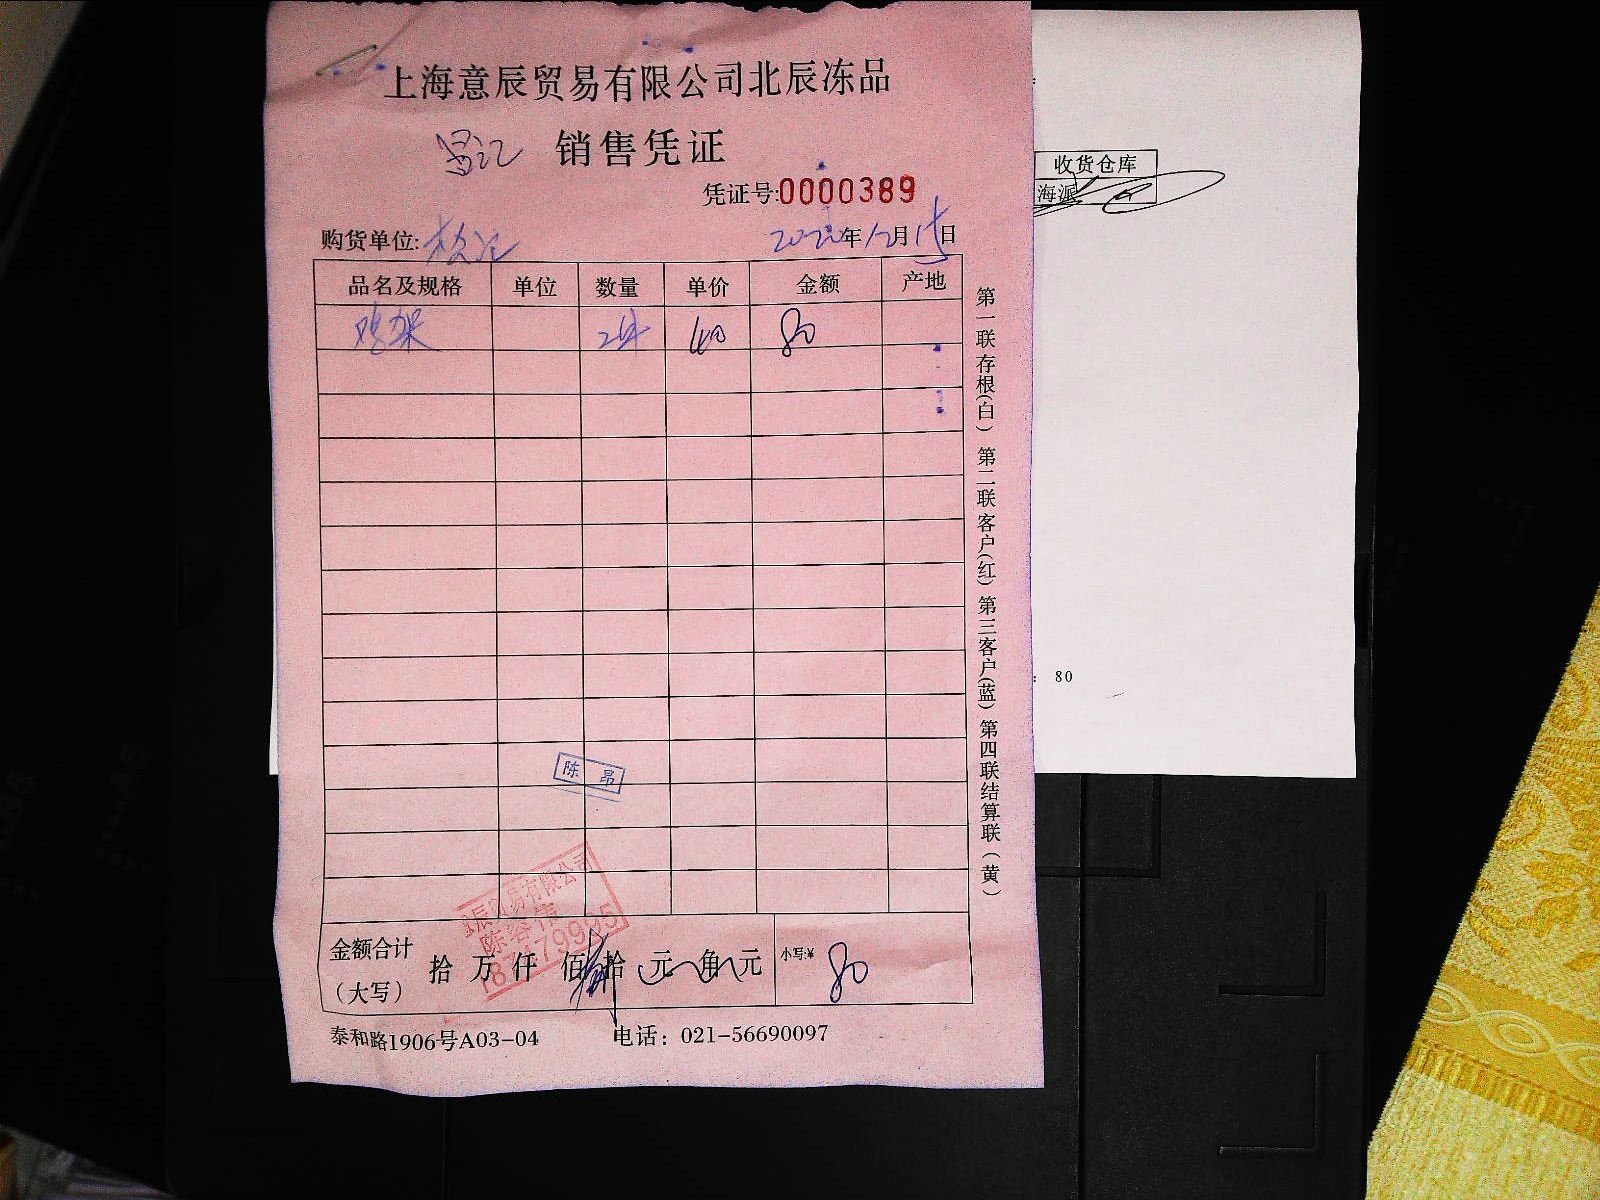 上海意辰贸易有限公司北辰冻品
销售凭证
凭证号:0000389
购货单位:
2020年12月15日
品名及规格 单位 数量 单价 金额 产地
鸡架 2件 40 80
第一联存根(白) 第二联客户(红) 第三客户(蓝) 第四联结算联(黄)
陈昂
辰贸易有限公司
金额合计(大写) 拾 万 仟 佰 捌拾 元 角 元 小写:¥ 80
泰和路1906号A03-04 电话: 021-56690097
收货仓库
海派
: 80